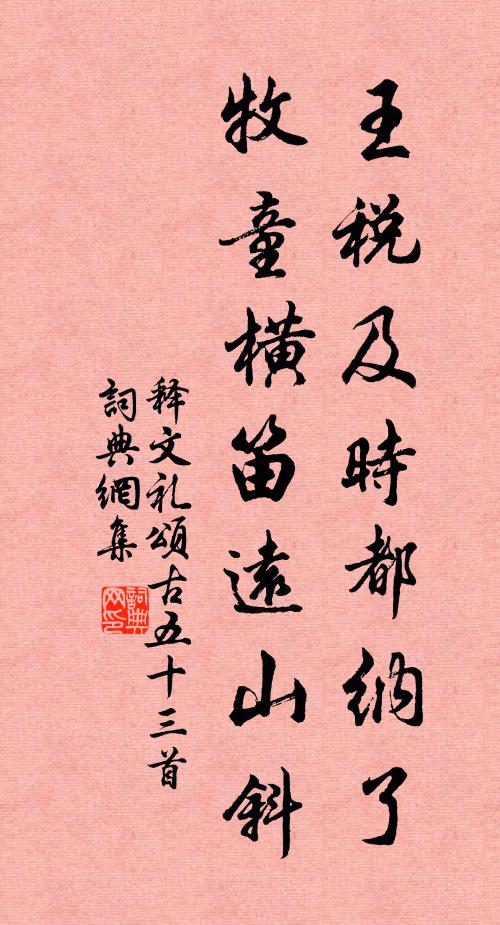 王税及時都納了
牧童橫笛遠山斜
释文礼頌古五十三首
詞典網集
詞典网印